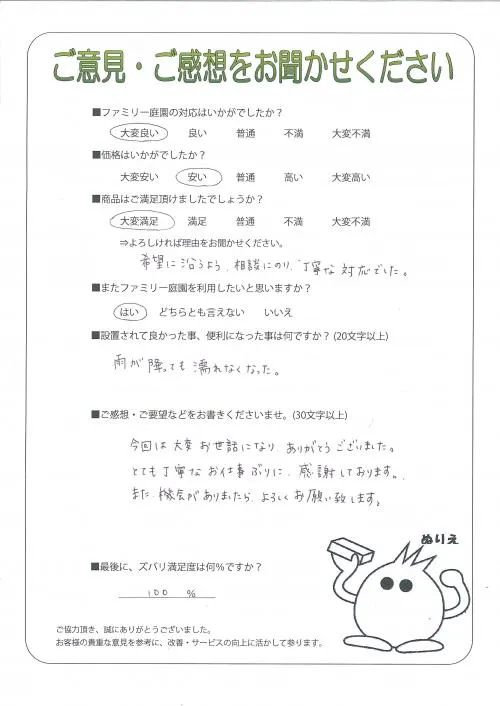 ご意見・ご感想をお聞かせください
■ファミリー庭園の対応はいかがでしたか？
大変良い 良い 普通 不満 大変不満
■価格はいかがでしたか？
大変安い 安い 普通 高い 大変高い
■商品はご満足頂けましたでしょうか？
大変満足 満足 普通 不満 大変不満
⇒よろしければ理由をお聞かせください。
希望に沿うよう、相談にのり、丁寧な対応でした。
■またファミリー庭園を利用したいと思いますか？
はい どちらとも言えない いいえ
■設置されて良かった事、便利になった事は何ですか？(20文字以上)
雨が降っても濡れなくなった。
■ご感想・ご要望などをお書きくださいませ。(30文字以上)
今回は大変お世話になり ありがとうございました。
とても丁寧なお仕事ぶりに、感謝しております。
また、機会がありましたら、よろしくお願い致します。
ぬりえ
■最後に、ズバリ満足度は何％ですか？
100 %
ご協力頂き、誠にありがとうございました。
お客様の貴重な意見を参考に、改善・サービスの向上に活かして参ります。